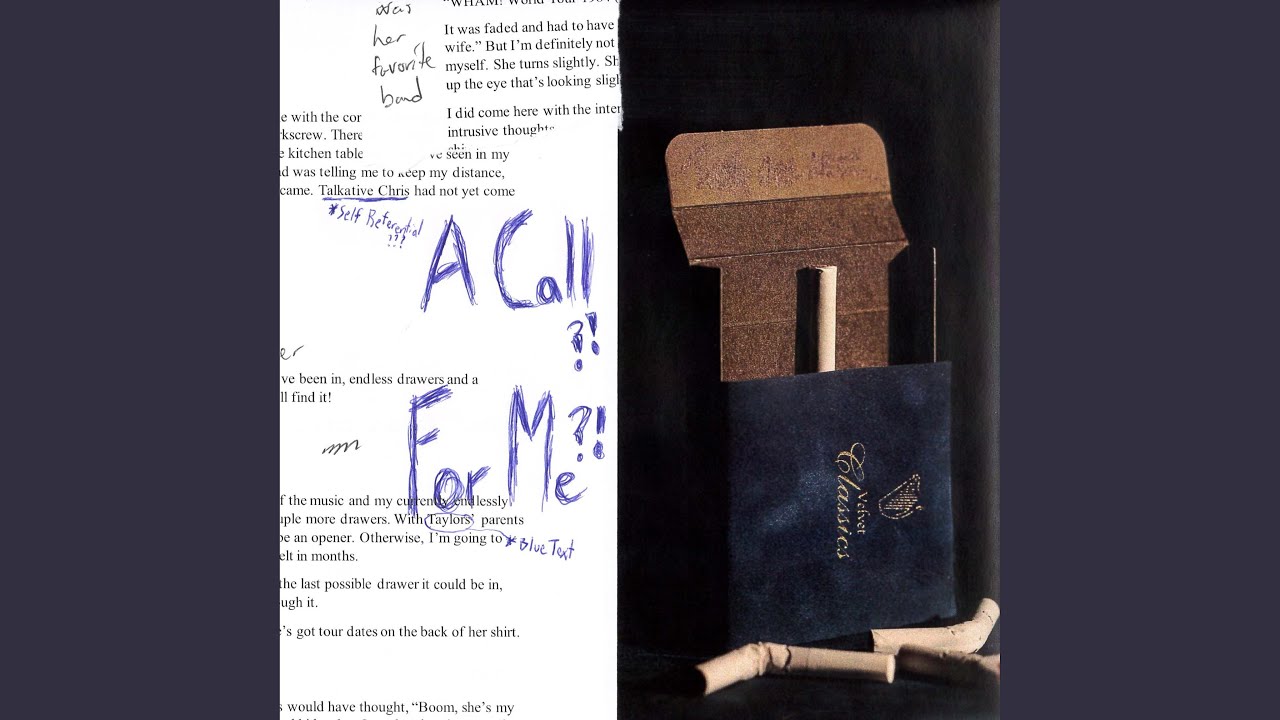 was
her
favorite
band
"WHAM! World Tour 1984
It was faded and had to have
wife." But I'm definitely not
myself. She turns slightly. Sh
up the eye that's looking sligh
I did come here with the inter
intrusive thoughts
e with the cor
rkscrew. There
e kitchen table
ve seen in my
d was telling me to keep my distance,
came. Talkative Chris had not yet come
*Self Referential
???!
A Call
?!
For Me
?!
er
ve been in, endless drawers and a
ll find it!
f the music and my currently endlessly
uple more drawers. With Taylors' parents
be an opener. Otherwise, I'm going to
*Blue Text
elt in months.
the last possible drawer it could be in,
ugh it.
e's got tour dates on the back of her shirt.
s would have thought, "Boom, she's my
Velvet
Classics